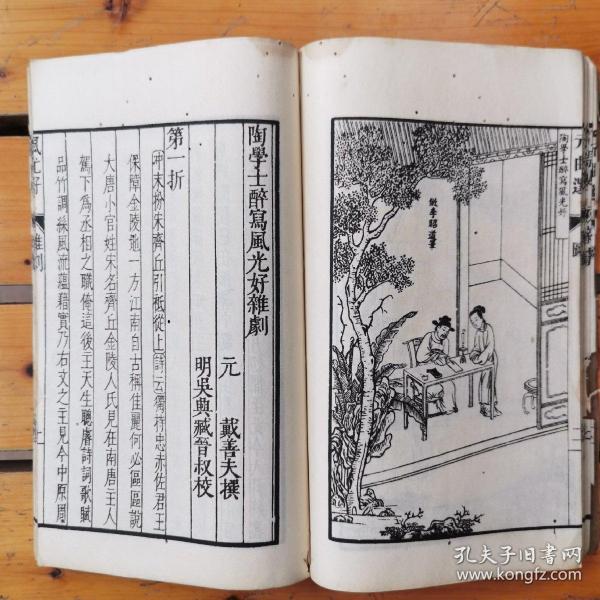 元曲選 圖
陶學士醉寫風光好
倣李昭道筆
陶學士醉寫風光好雜劇
元 戴善夫撰
明吳興臧晉叔校
第一折
冲末扮宋齊丘引祗從上詩云獨持忠赤佐君王
保障金陵一方江南自古稱佳麗何必區區說
大唐小官姓宋名齊丘金陵人氏見在南唐主人
駕下爲丞相之職俺這後主天生聰詩詞歌賦
品竹調絲風流蘊藉實乃右文之主見今中原周
風光好 雜劇
孔夫子旧书网
www.kongfz.com